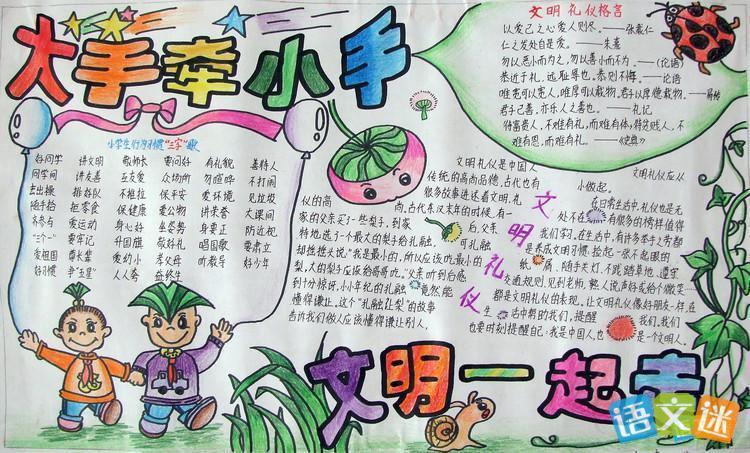 大手牵小手
文明礼仪格言
以爱己之心爱人则尽。——张载仁
仁之发处自是爱。——朱熹
勿以恶小而为之,勿以善小而不为。——《论语》
恭近于礼,远耻辱也。恭则不侮。——论语
唯宽可以容人,唯厚可以载物。君子以厚德载物。
君子己善,亦乐人之善也。——礼记
待富贵人,不难有礼,而难有体;待贫贱人,不
难有恩,而难有礼。
小学生行为习惯“三字”歌
好同学 讲文明 敬师长 要问好 有礼貌 善待人
同学间 讲友善 互友爱 众场所 勿喧哗 不打闹
走出操 排好队 不推拉 保平安 爱环境 见垃圾
随手拾 拒零食 保健康 爱公物 讲荣誉 大课间
齐参与 爱运动 身心好 坐姿势 身要正 防近视
“三个一” 要牢记 升国旗 敬好礼 唱国歌 要肃立
爱祖国 尊长辈 爱幼小 孝父母 听教导 好少年
好习惯 争“五星” 人人夸 益终生
文明礼仪
文明礼仪是中国人
传统的高尚品德,古代也有
很多故事述送着文明、礼
仪的高尚。古代东汉末年的时候,有一
家的父亲买了一些梨子,到家后,父亲
特地选了一个最大的梨子给孔融,可孔融
却摇摇头说:“我是最小的,所以应该吃最小的
梨,大的梨子应该给哥哥吃。”父亲听到后感
到十分惊讶,小小年纪的孔融竟然能
懂得谦让。这个“孔融让梨”的故事
告诉我们做人应该懂得谦让别人。
文明礼仪应从
小做起。
在日常生活中,礼仪也是无
处不在,有很多的榜样值得
我们学习。在生活中,有许多举手之劳都
是养成文明习惯。捡起一张不起眼的
纸屑、随手关灯、不践踏草地、遵守
交通规则、见到老师、熟人说声好或给个微笑……
都是文明礼仪的表现。让文明礼仪像好朋友一样,在
生活中帮助我们,提醒我们。我们
也要时刻提醒自己:我是中国人,也是一个文明人。
文明一起走
语文迷